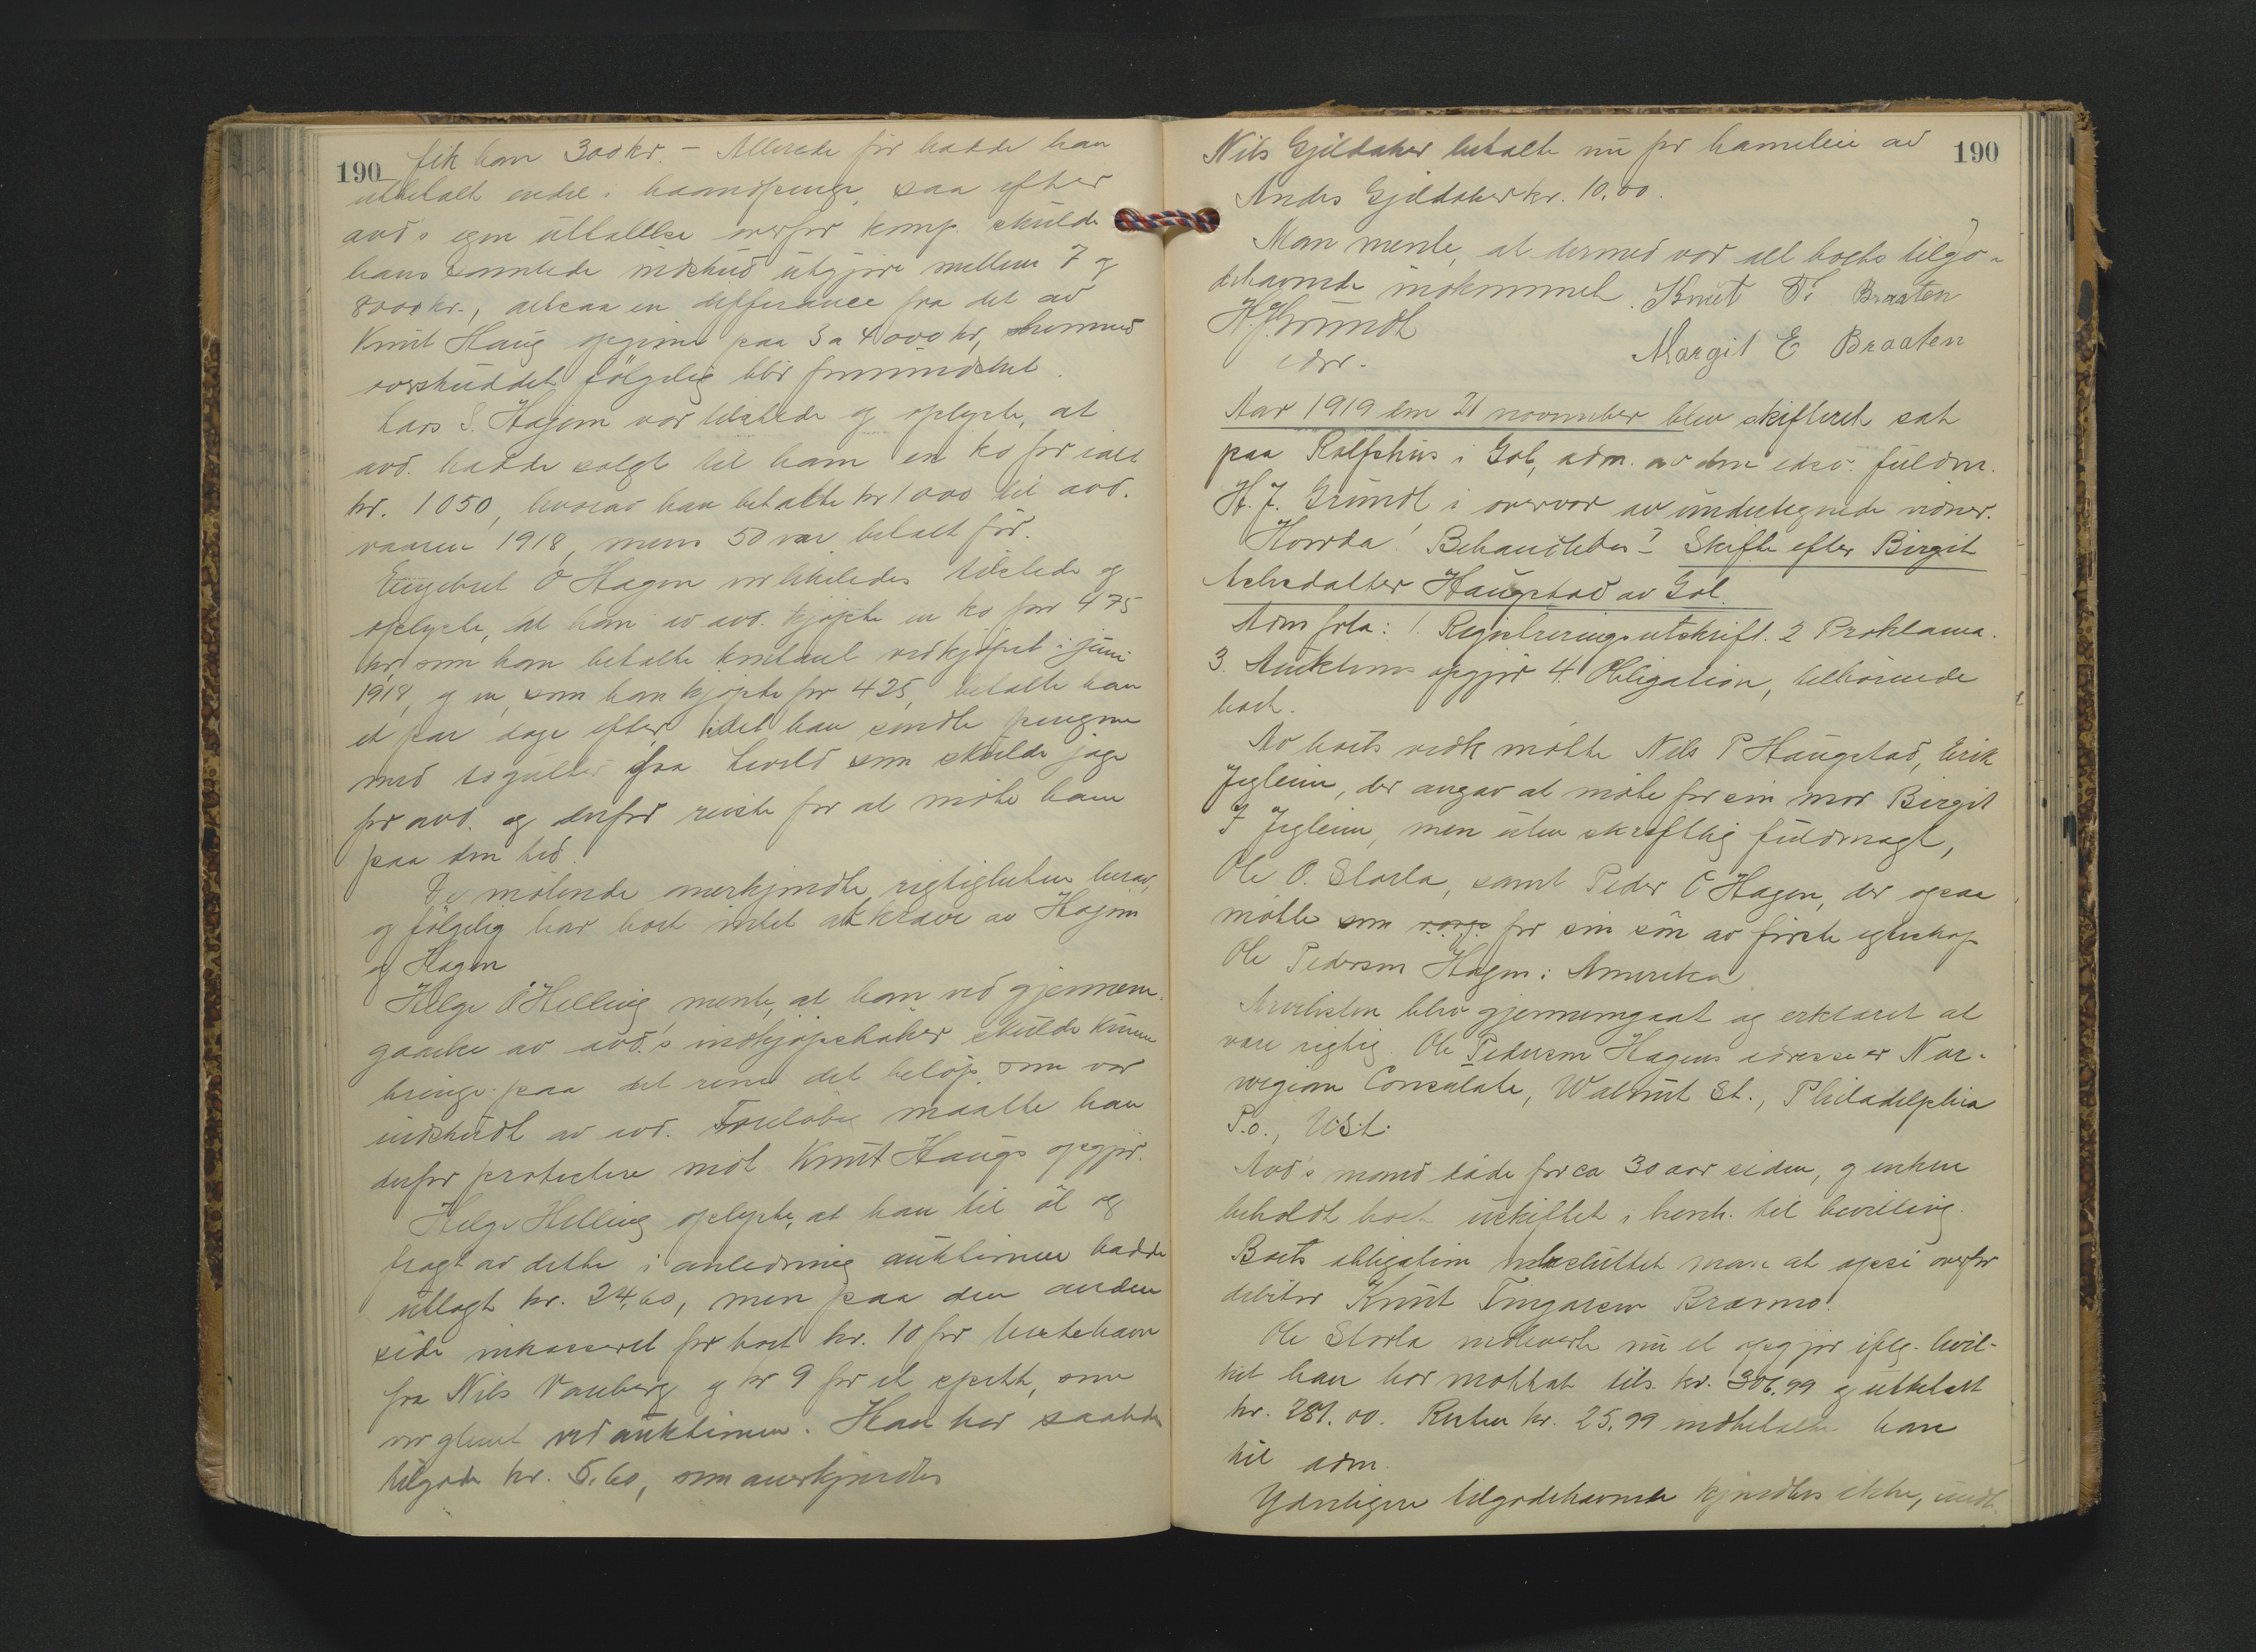 190
fik han 300 kr. - Allerede før hadde han
utbetalt endel i haandpenge, saa efter
avd's egen uttalelse overfor komp. skulde
hans samlede indskud utgjøre mellem 7 og
8000 kr., altsaa en differance fra det av
Knut Haug opgivne paa 3 a 4000 kr, hvormed
overskuddet følgelig blir formindsket.
Lars S. Hagen var tilstede og oplyste, at
avd. hadde solgt til ham en ko for ialt
kr. 1050, hvorav han betalte kr 1000 til avd.
vaaren 1918, mens 50 var betalt før.
Engebret O Hagen var likeledes tilstede og
oplyste, at han av avd. kjøpte en ko for 475
kr, som han betalte kontant ved kjøpet i juni
1918, og en, som han kjøpte for 425, betalte han
et par dage efter, idet han sendte pengene
med to gutter fra som skulde jage
for avd. og derfor reiste for at møte ham
paa den tid.
De møtende anerkjendte rigtigheten herav,
og følgelig har boet intet at kræve av Hagen
og Hagen
Helge O Helling mente, at han ved gjennem-
gaaelse av avd.'s indkjøpsbøker skulde kunne
bringe paa det rene det beløp som var
indskudt av avd. Foreløbig maatte han
derfor protestere mot Knut Haugs opgjør.
Helge Helling oplyste, at han til øl og
fragt av dette i anledning auktionen hadde
utlagt kr. 24,60, men paa den anden
side inkasseret for boet kr. 10 for hestehavn
fra Nils Vauberg og kr 9 for et spett, som
var glemt ved auktionen. Han har saaledes
tilgode kr. 5,60, som anerkjendtes
190
Nils Gjeldaker betalte nu for hamelien av
Anders Gjeldaker kr. 10,00.
Man mente, at dermed var alt boets tilgo-
dehavende indkommet. Knut T. Braaten
H.J. Grundt
edsv.
Margit E Braaten
Aar 1919 den 21 november blev skifteret sat
paa Rolfshus i Gol, adm. av den edsv. fuldm.
H. J. Grundt i overvær av undertegnede vidner.
Hvorda! Behandledes: Skifte efter Birgit
Asledatter Haugstad av Gol.
Adm frla: 1. Registreringsutskrift. 2 Proklama.
3. Auktions opgjør 4. Obligation, tilhørende
boet.
Av boets vedk møtte Nils P Haugstad, Erik
Jegleim, der angav at møte for sin mor Birgit
J Jegleim, men uten skriftlig fuldmagt,
Ole O. Storla, samt Peder O Hagen, der ogsaa
møtte som verge for sin søn av første egteskap
Ole Pedersen Hagen i Amerika
Arvelisten blev gjennemgaat og erklæret at
være rigtig. Ole Pedersen Hagens adresse er Nor-
wegian Consulate, Walnut St., Philadelphia
P.o., USA.
Avd's mand døde for ca 30 aar siden, og enken
beholdt boet uskiftet i henh. til bevilling.
Boets obligation besluttet man at opsi overfor
debitor Knut Tingarsen Brænno.
Ole Storla indleverte nu et opgjør iflg. hvil-
ket han har mottat tils. kr. 306,99 og utbetalt
kr. 281.00. Resten kr. 25,99 indbetalte han
til adm.
Yderligere tilgodehavende kjendtes ikke, undt.